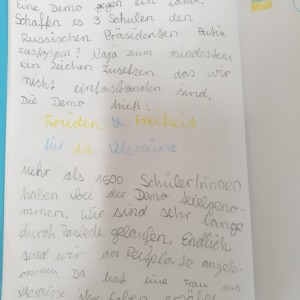 Eine Demo gegen ein Land.
Schaffen es 3 Schulen den
Russischen Präsidenten Putin
zustoppen? Naja zum mindesten
ein zeichen zusetzen das wir
nicht einfastanden sind.
Die Demo hieß:
Frieden & Freiheit
für die Ukraine
Mehr als 1600 Schülerinnen
haben bei der Demo teilgeno-
mmen. Wir sind sehr lange
durch gelaufen. Endlich
sind wir am angeko-
mmen. Da hat eine Frau aus